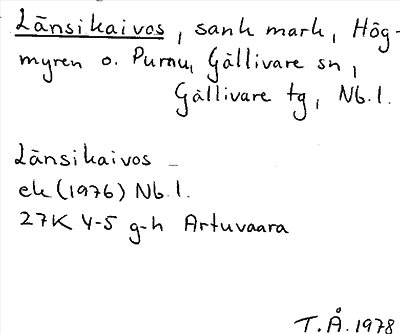 Länsikaivos, sank mark, Hög-
myren o. Purnu, Gällivare sn,
Gällivare tg, Nb.l.
Länsikaivos –
ek (1976) Nb.l.
27K 4-5 g-h Artuvaara
T.Å. 1978